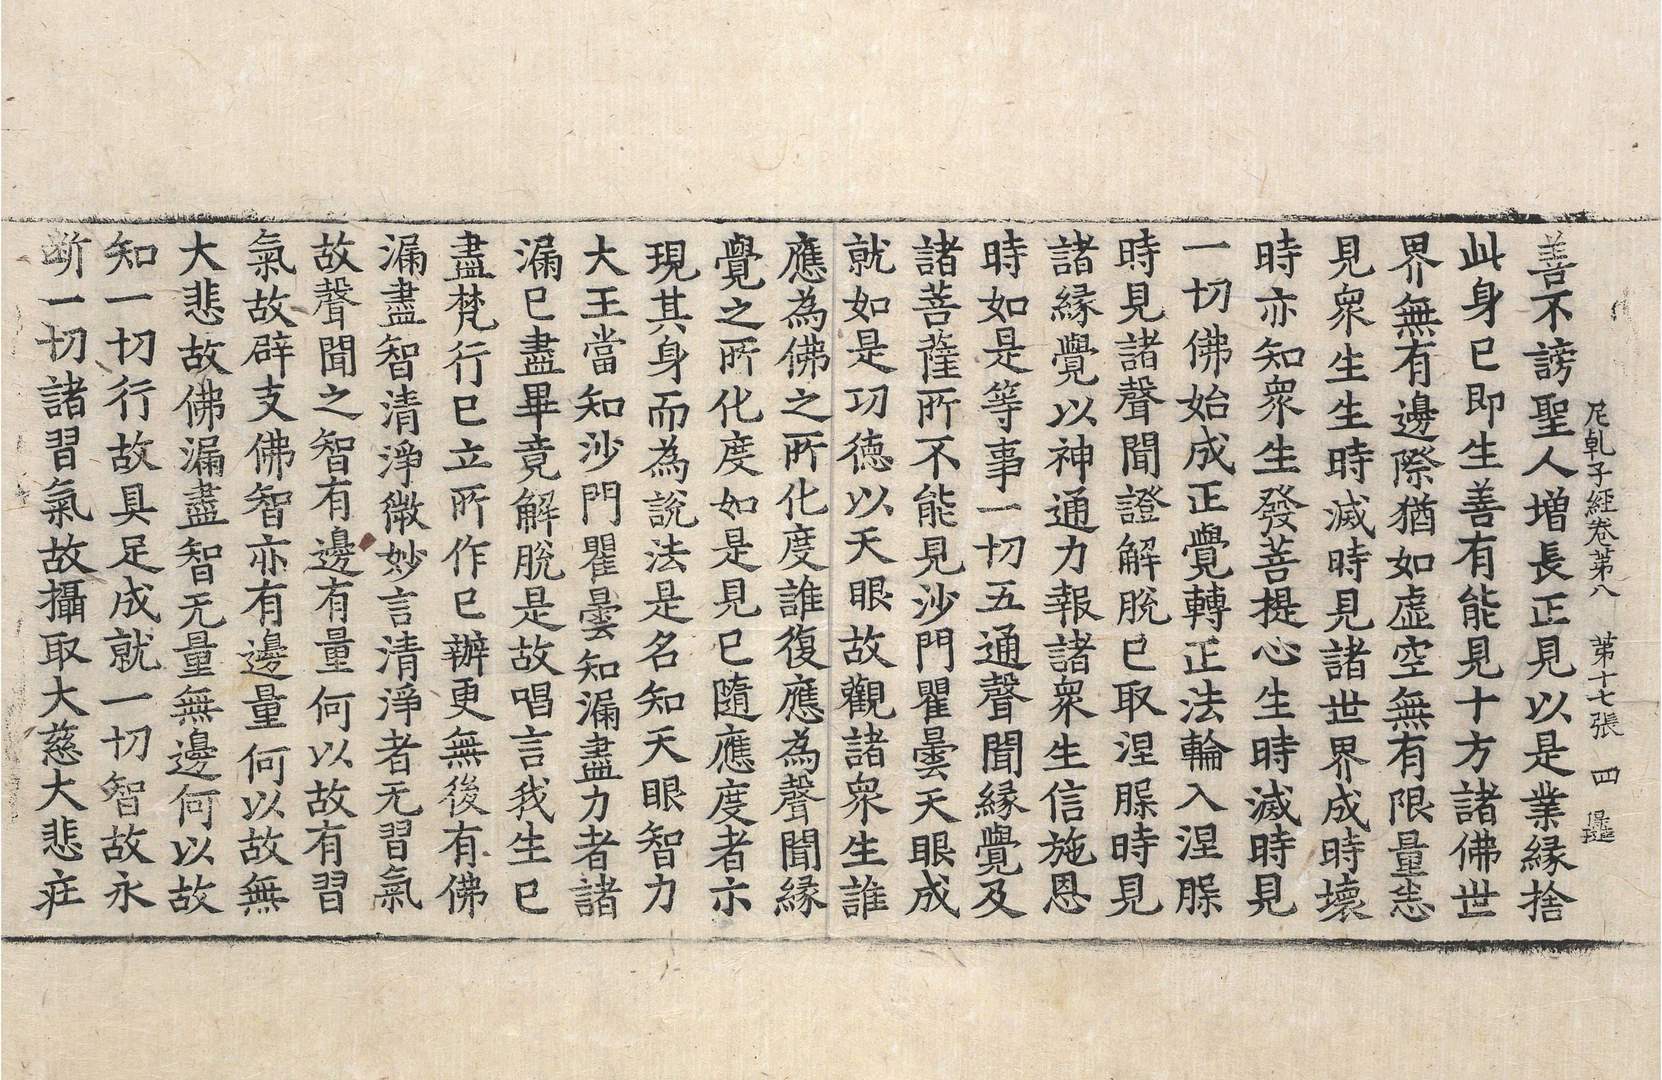 尼乹子經卷苐八　苐十七張　四
善不謗聖人增長正見以是業緣捨
此身已即生善有能見十方諸佛世
界無有邊際猶如虛空無有限量悉
見衆生生時滅時見諸世界成時壞
時亦知衆生發菩提心生時滅時見
一切佛始成正覺轉正法輪入涅䏶
時見諸聲聞證解脫已取涅䏶時見
諸緣覺以神通力報諸衆生信施恩
時如是等事一切五通聲聞緣覺及
諸菩薩所不能見沙門瞿曇天眼成
就如是功德以天眼故觀諸衆生誰
應為佛之所化度誰復應為聲聞緣
覺之所化度如是見已隨應度者示
現其身而為說法是名知天眼智力
大王當知沙門瞿曇知漏盡力者諸
漏已盡畢竟解脫是故唱言我生已
盡梵行已立所作已辦更無後有佛
漏盡智清淨微妙言清淨者无習氣
故聲聞之智有邊有量何以故有習
氣故辟支佛智亦有邊量何以故無
大悲故佛漏盡智无量無邊何以故
知一切行故具足成就一切智故永
断一切諸習氣故攝取大慈大悲疰